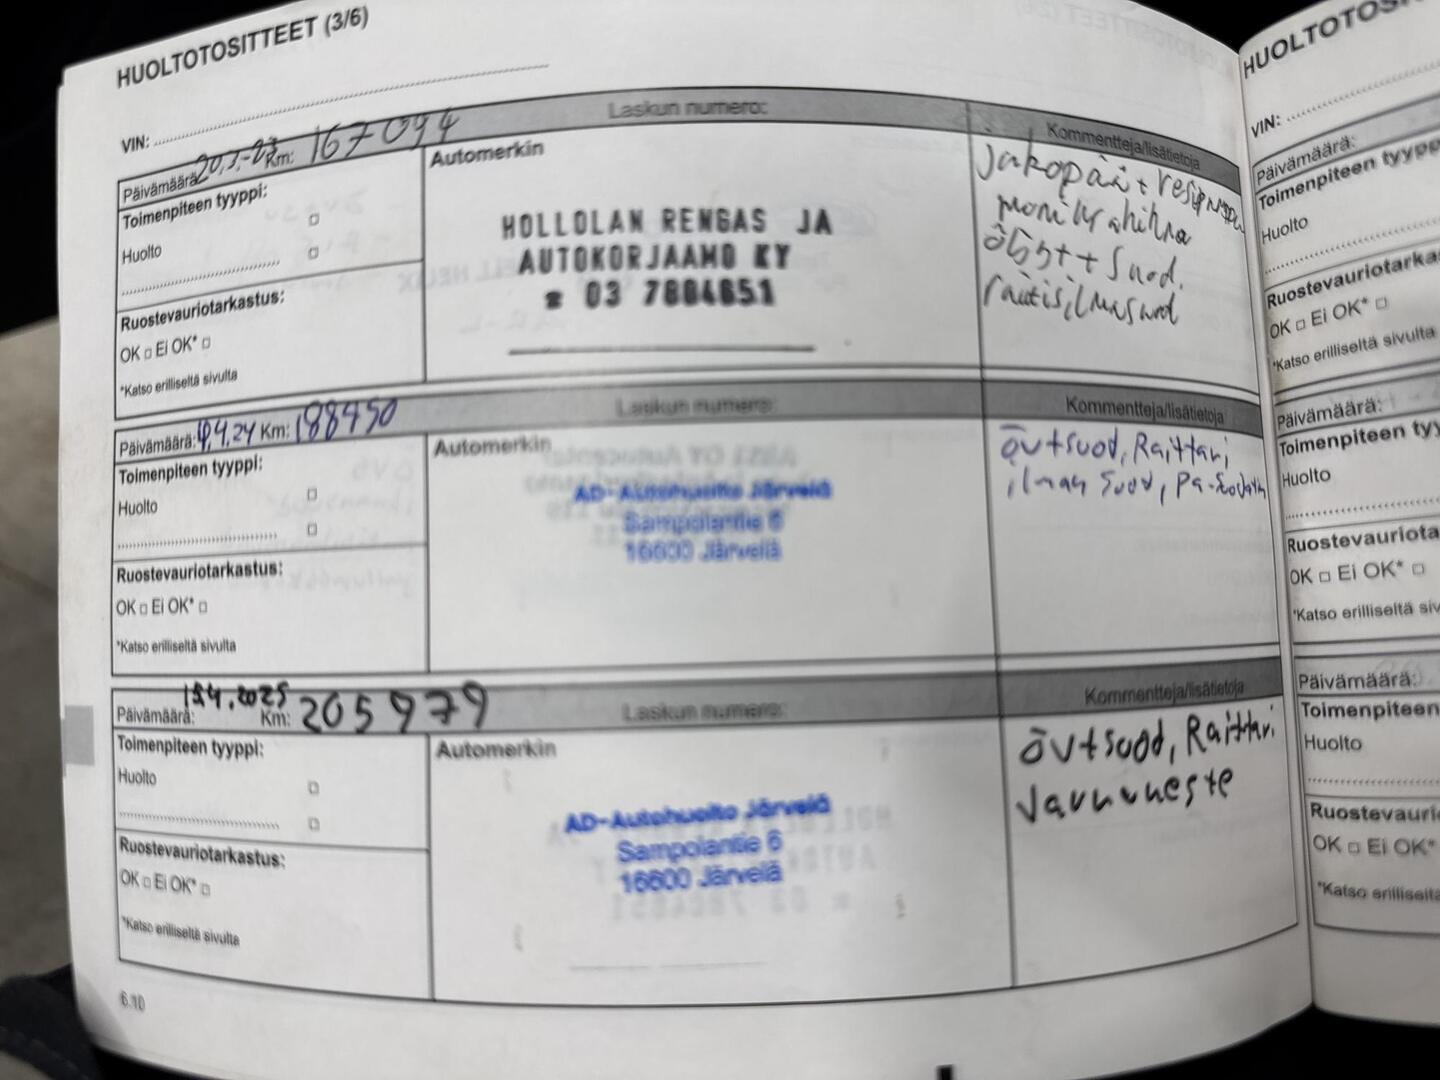 HUOLTOTOSITTEET (3/6)
VIN:
Päivämäärä: 20.3.-23 Km: 167094
Laskun numero:
Kommentteja/lisätietoja
Toimenpiteen tyyppi:
Huolto
Ruostevauriotarkastus:
OK □ Ei OK* □
*Katso erilliseltä sivulta
Automerkin
HOLLOLAN RENGAS JA
AUTOKORJAAMO KY
☎ 03 7884651
jakopää +
moniurahihna
öljyt + suod.
raitisilmasuod
Päivämäärä: 9.4.24 Km: 188450
Laskun numero:
Kommentteja/lisätietoja
Toimenpiteen tyyppi:
Huolto
Ruostevauriotarkastus:
OK □ Ei OK* □
*Katso erilliseltä sivulta
Automerkin
AD-Autohuolto Järvelä
Sampolantie 6
16600 Järvelä
öv+suod, Raittari
ilman suod,
Päivämäärä: 15.4.2025 Km: 205979
Laskun numero:
Kommentteja/lisätietoja
Toimenpiteen tyyppi:
Huolto
Ruostevauriotarkastus:
OK □ Ei OK* □
*Katso erilliseltä sivulta
Automerkin
AD-Autohuolto Järvelä
Sampolantie 6
16600 Järvelä
öv+suod, Raittari
Jarruneste
6.10
HUOLTOTOS
VIN:
Päivämäärä:
Toimenpiteen tyypp
Huolto
Ruostevauriotarkas
OK □ Ei OK* □
*Katso erilliseltä sivulta
Päivämäärä:
Toimenpiteen ty
Huolto
Ruostevauriota
OK □ Ei OK* □
*Katso erilliseltä siv
Päivämäärä:
Toimenpiteen
Huolto
Ruostevaurio
OK □ Ei OK*
*Katso erilliseltä